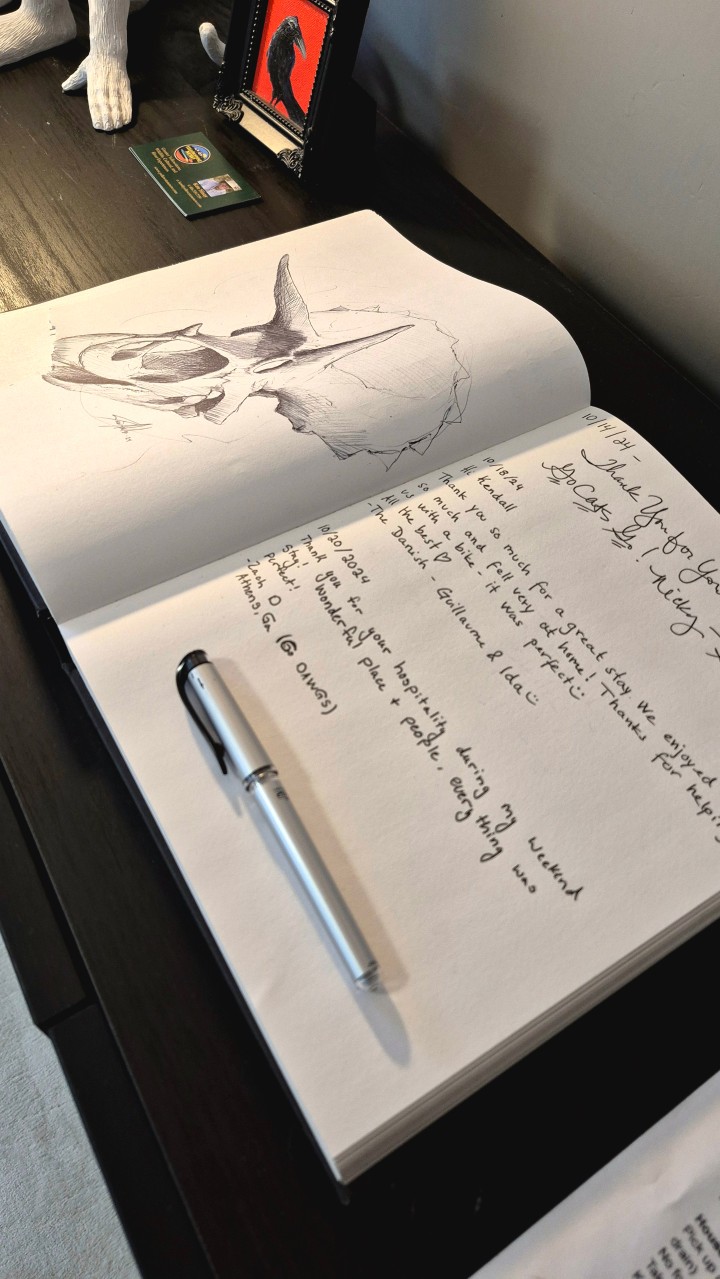 10/14/24 -
Thank You for You
Go Cats Go! Nicky
10/18/24
Hi Kendall
Thank you so much for a great stay we enjoyed
so much and fell very at home! Thanks for helpin
us with a bike - it was perfect :)
All the best ♡
-The Danish - Guillaume & Ida :)
10/20/2024
Thank you for your hospitality during my weekend
stay! Wonderful place + people, everything was
perfect!
-Zach D
Athens, Ga (Go DAWGS)
Pick up
drain)